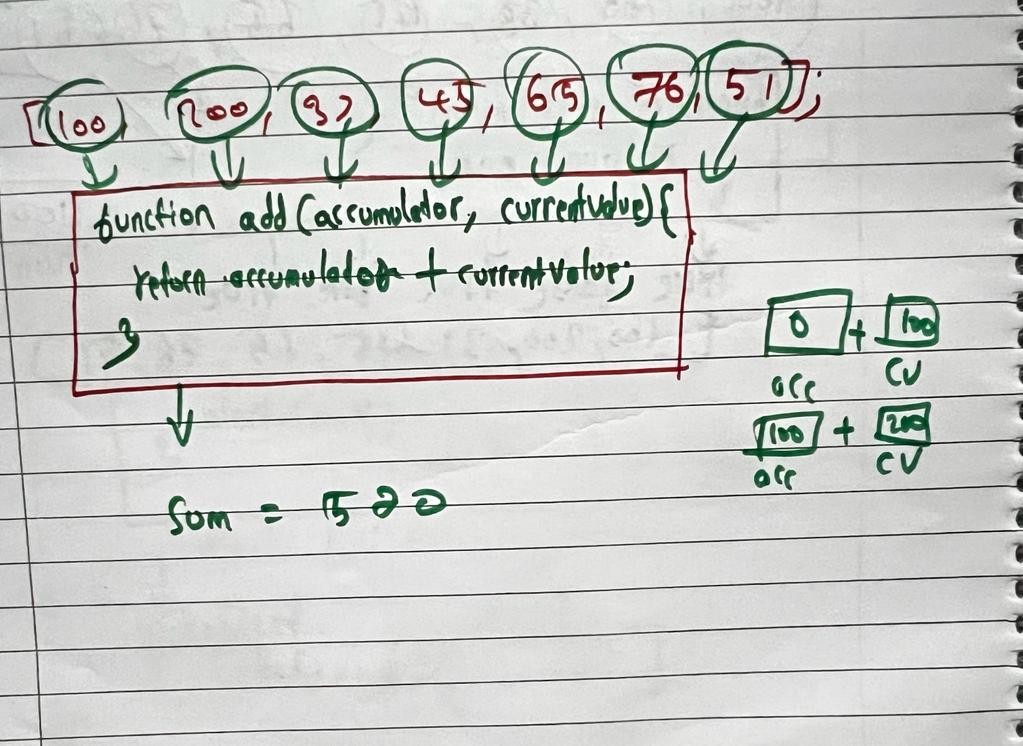 [100, 200, 32, 45, 65, 76, 51];
function add (accumulator, currentvalue) {
return accumulator + currentvalue;
}
0 + 100
acc CV
100 + 200
acc CV
Sum = 520